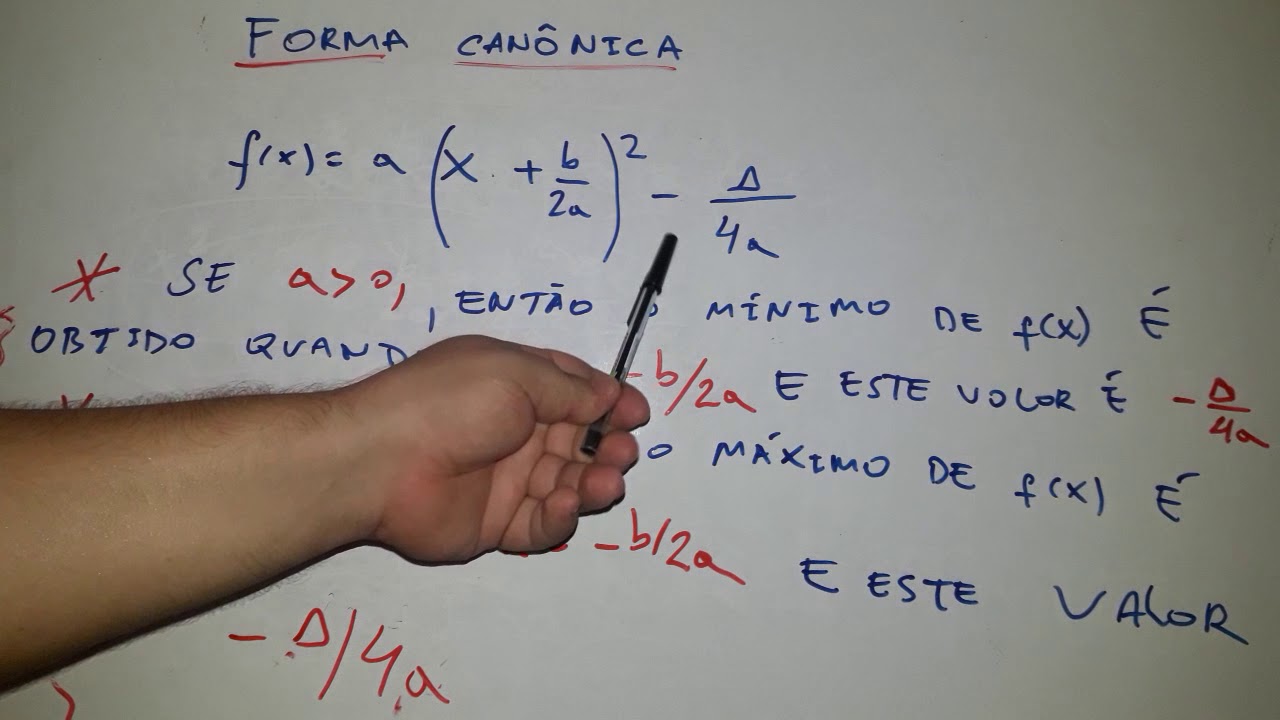 FORMA CANÔNICA
f(x) = a (x + b/2a)² - Δ/4a
* SE a>0, , ENTÃO O MÍNIMO DE f(x) É
OBTIDO QUAND -b/2a E ESTE VALOR É - Δ/4a
O MÁXIMO DE f(x) É
-b/2a E ESTE VALOR
- Δ/4a